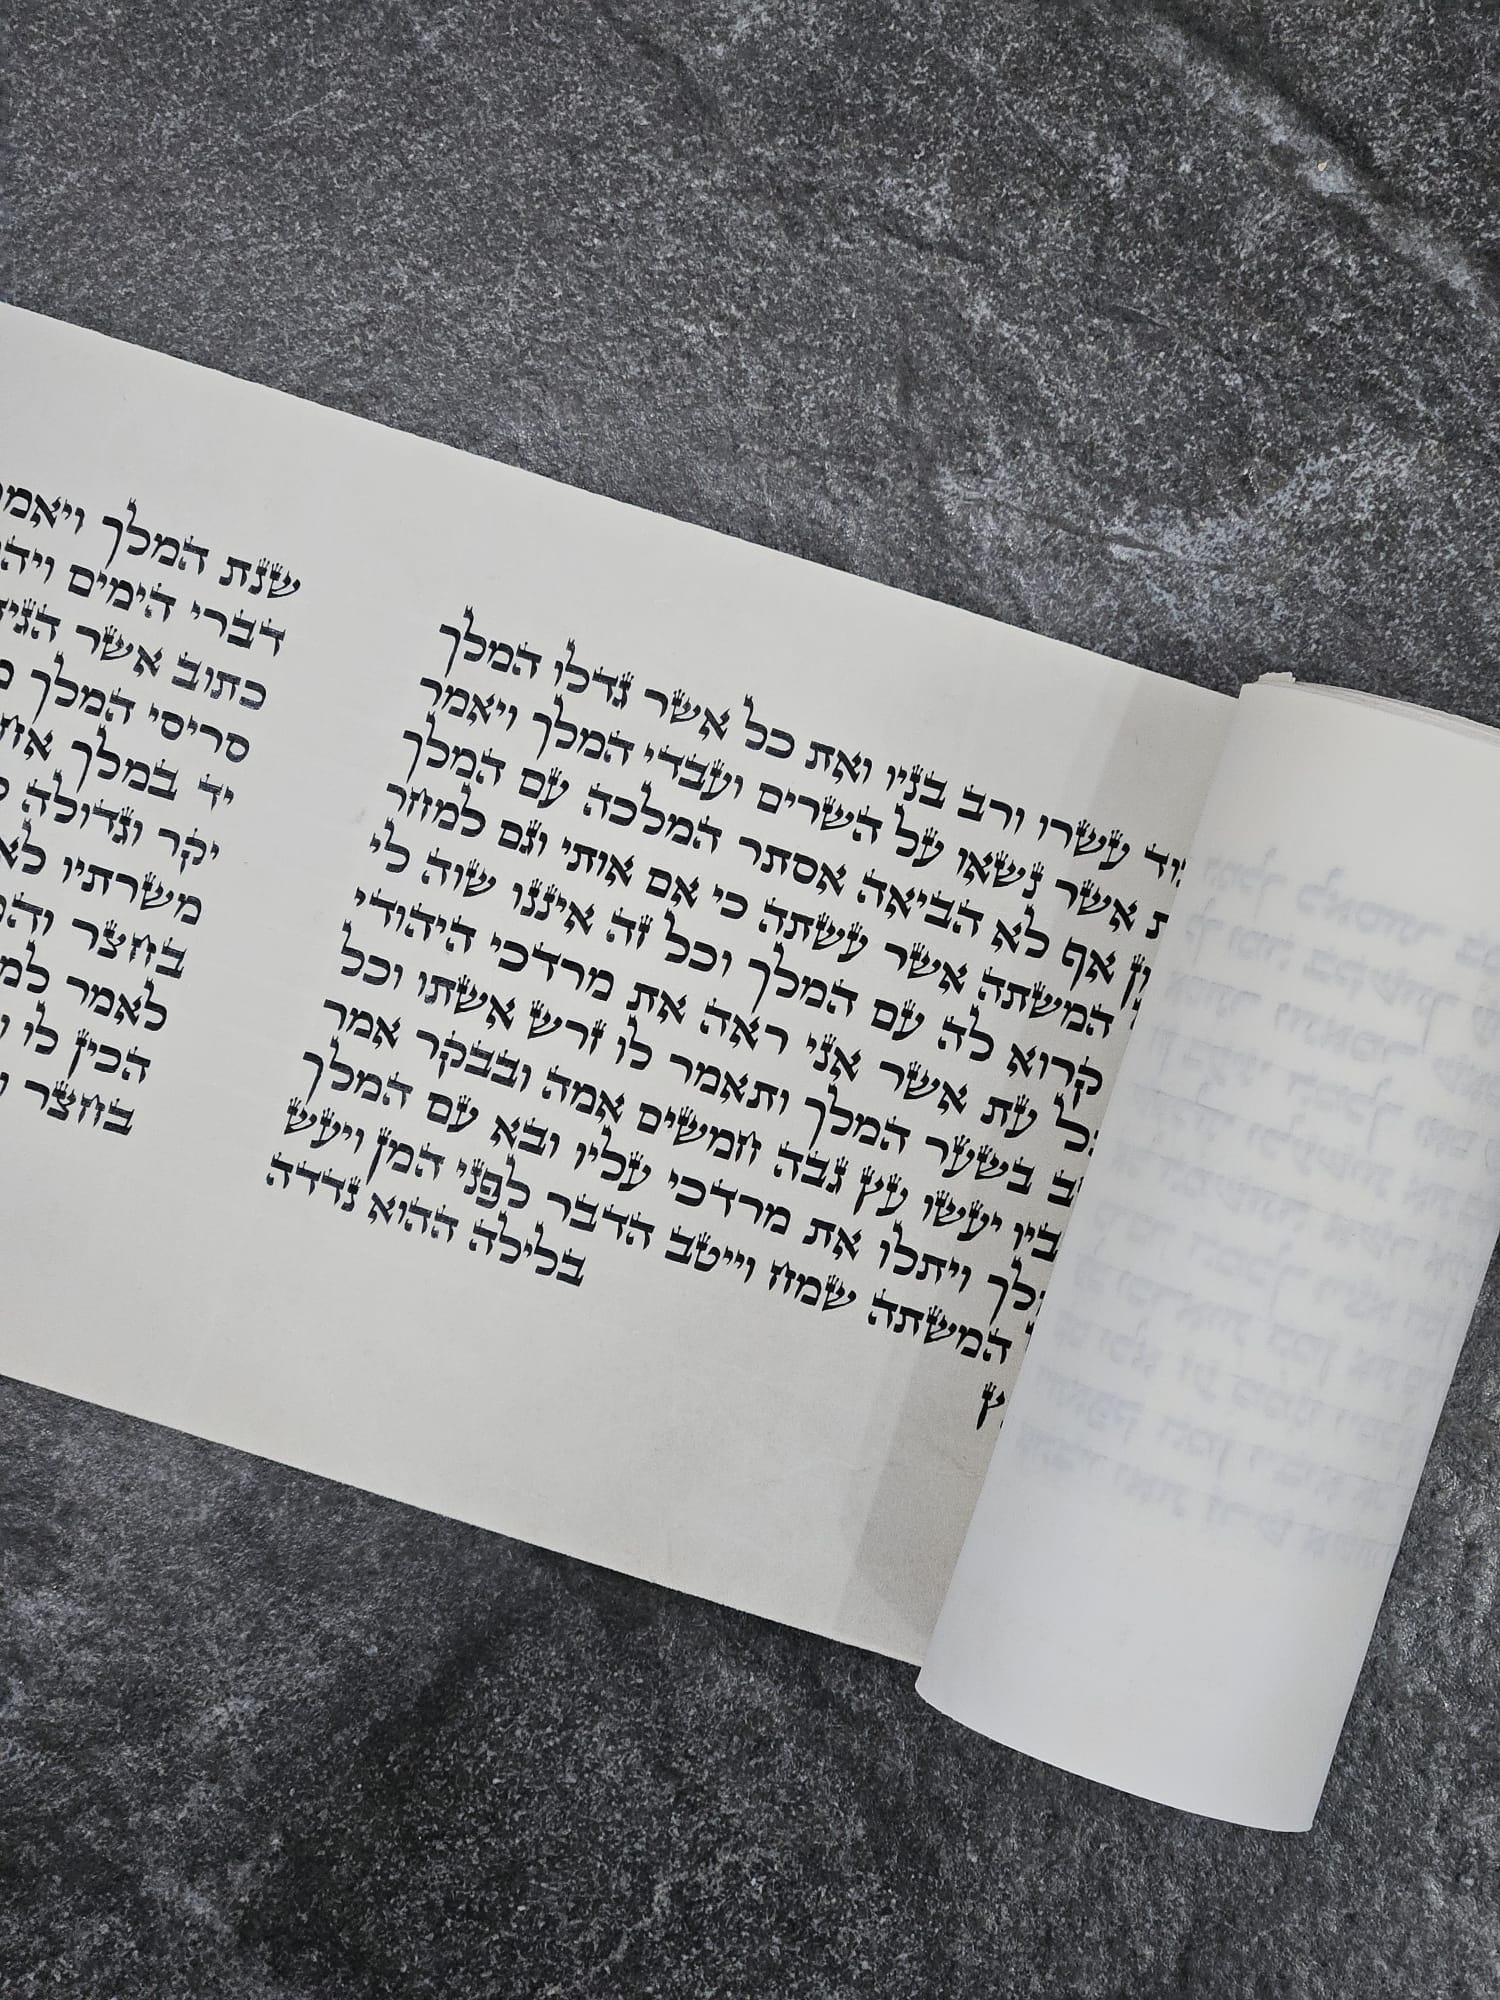 עשרו ורב בניו ואת כל אשר גדלו המלך
אשר נשאו על השרים ועבדי המלך ויאמר
אף לא הביאה אסתר המלכה עם המלך
המשתה אשר עשתה כי אם אותי וגם למחר
קרוא לה עם המלך וכל זה איננו שוה לי
כל עת אשר אני ראה את מרדכי היהודי
בשער המלך ותאמר לו זרש אשתו וכל
ביו יעשו עץ גבה חמשים אמה ובבקר אמר
לך ויתלו את מרדכי עליו ובא עם המלך
המשתה שמח וייטב הדבר לפני המן ויעש
ץ בלילה ההוא נדדה
שנת המלך ויאמר
דברי הימים ויה
כתוב אשר הגי
סריסי המלך
יד במלך אח
יקר וגדולה
משרתיו לא
בחצר וה
לאמר למ
הכין לו
בחצר